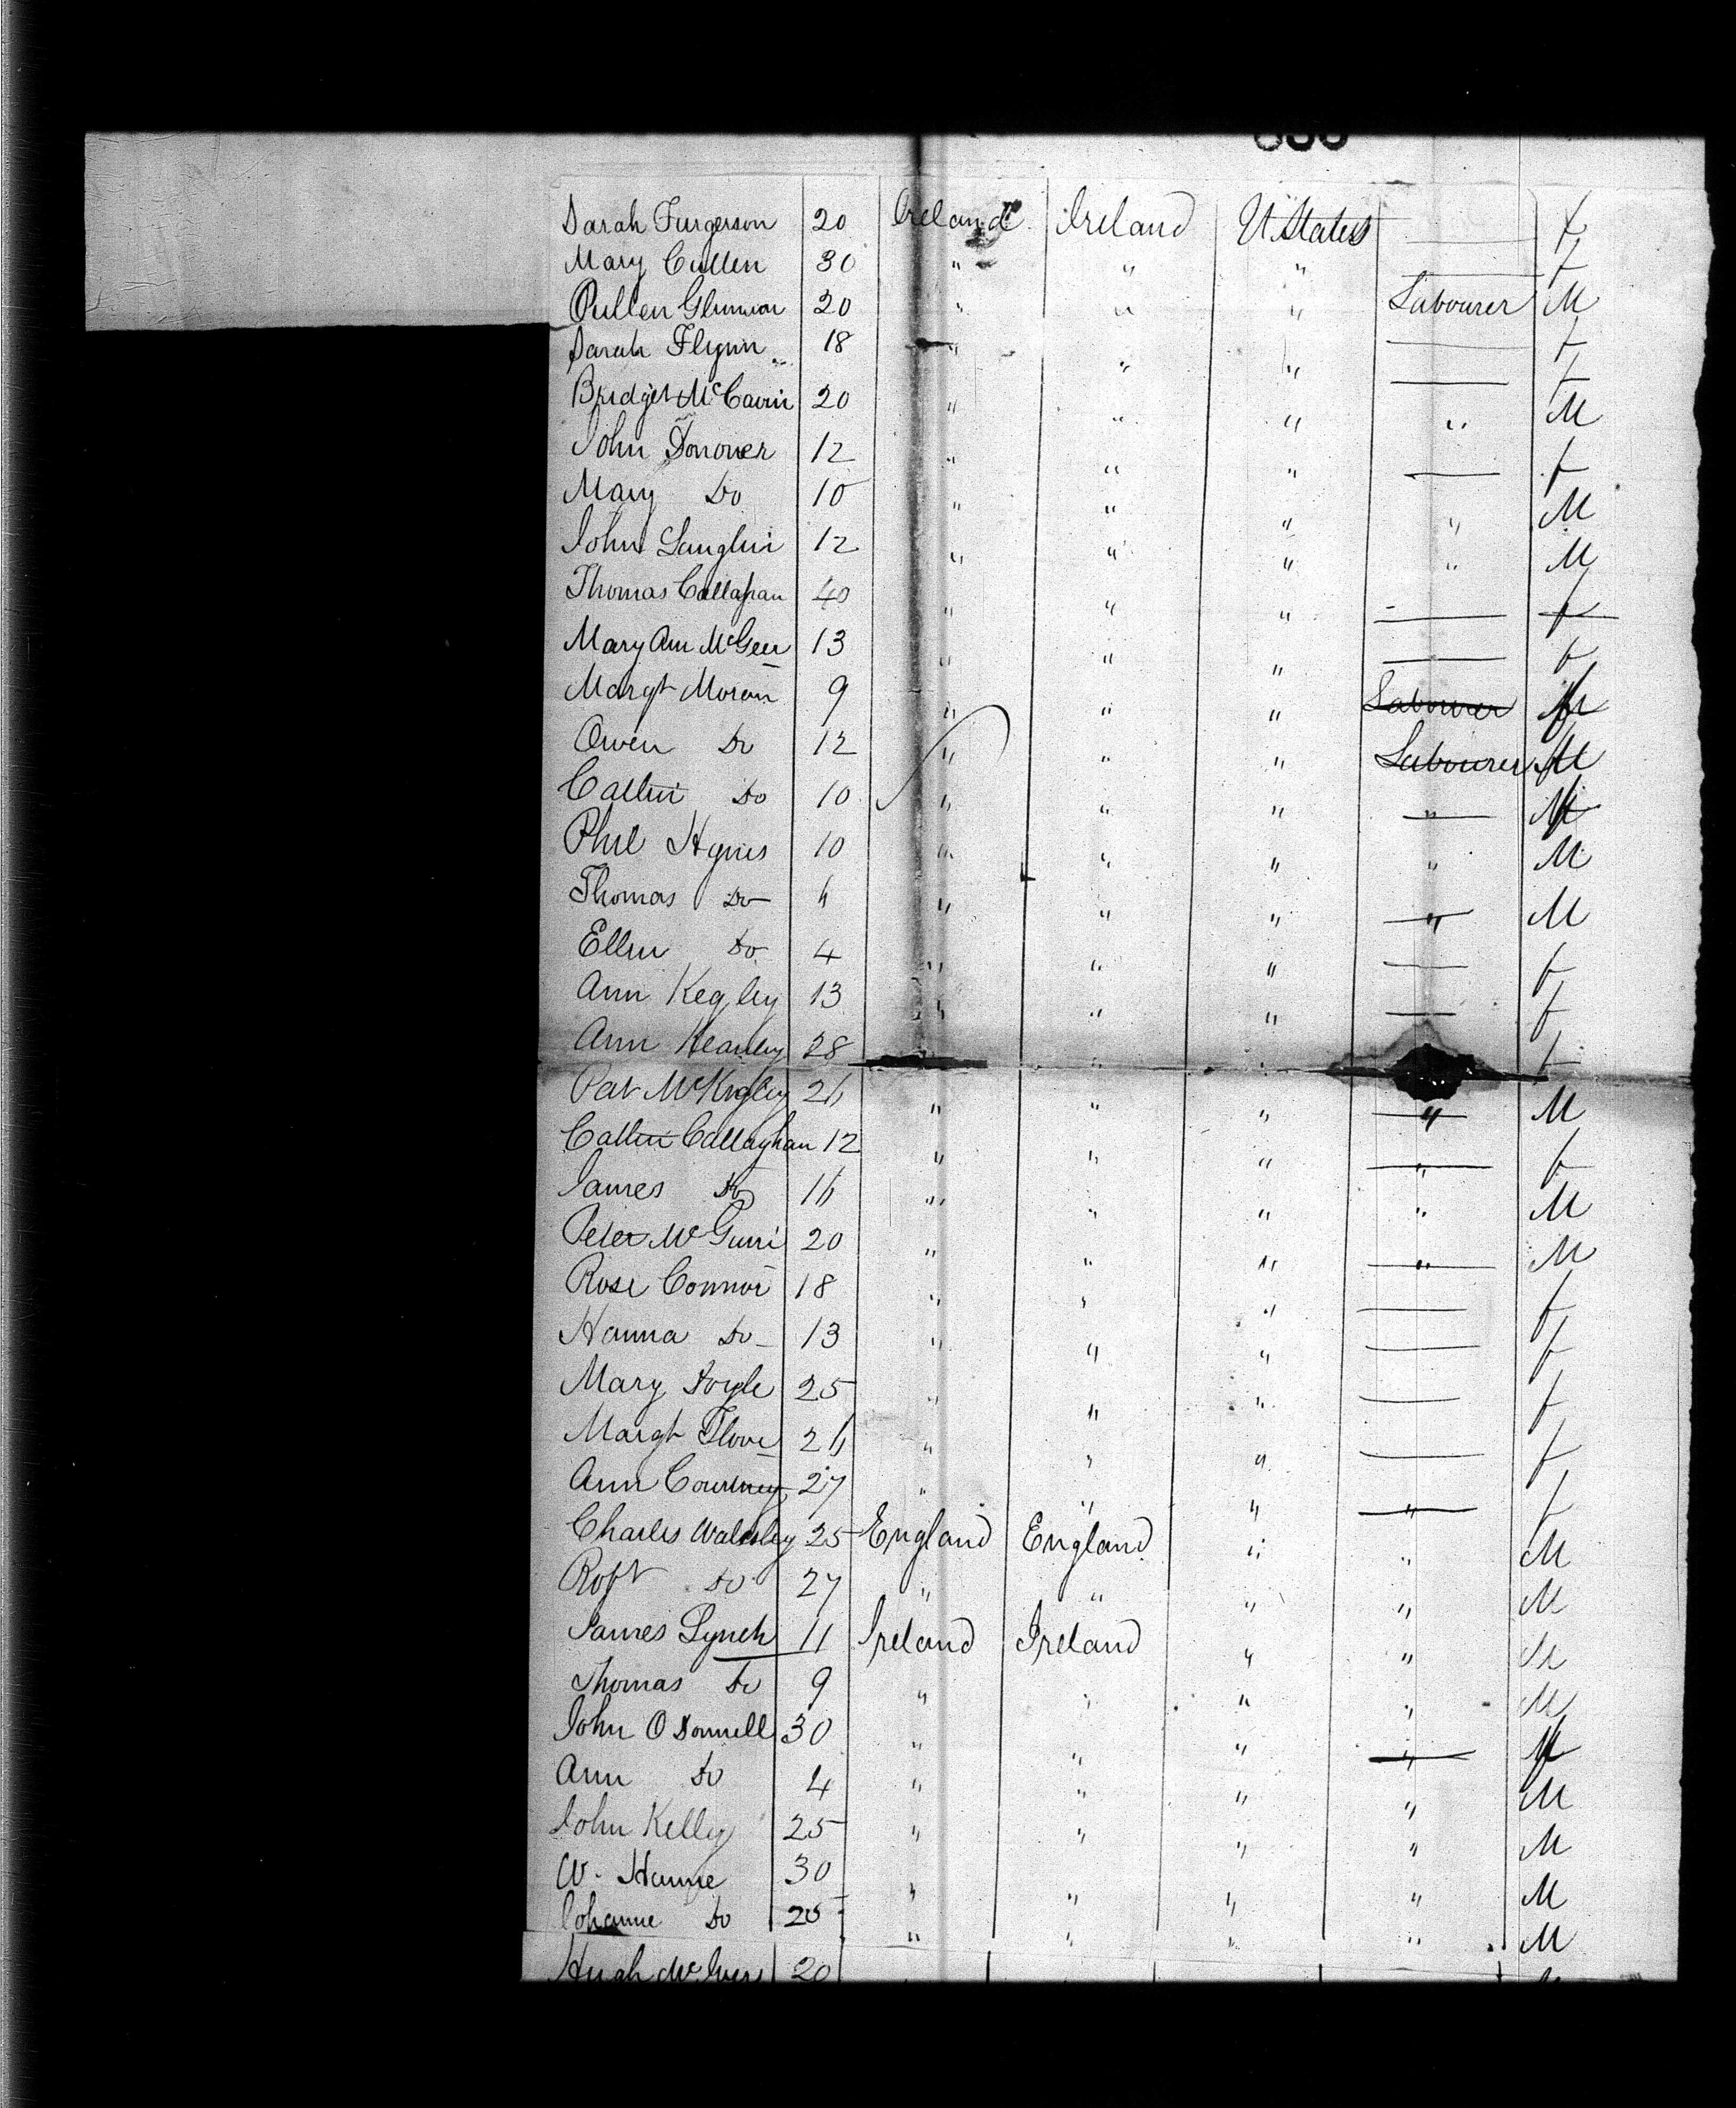 Sarah Furgerson 20 Ireland Ireland U States — f
Mary Cullen 30 " " " — f
Pullen 20 " " " Labourer M
Sarah Flynn 18 " " " — f
Bridget McCavin 20 " " " — f
John Donover 12 " " " " M
Mary Do 10 " " " — f
John Langlin 12 " " " " M
Thomas Callahan 40 " " " " M
Mary Ann McGee 13 " " " — f
Margt Moran 9 " " " — f
Owen Do 12 " " " Labourer M
Cathn Do 10 " " " Labourer
Phil Hynes 10 " " " " M
Thomas Do 6 " " " " M
Ellen Do 4 " " " — f
Ann Kegley 13 " " " — f
Ann Heanley 28 " " " f
Pat McKegley 26 " " " " M
Cathn Callaghan 12 " " " " f
James Do 16 " " " " M
Peter McGunn 20 " " " " M
Rose Connor 18 " " " — f
Hanna Do 13 " " " — f
Mary Doyle 25 " " " — f
Margt 26 " " " — f
Ann Courtney 27 " " " " f
Charles Walesley 25 England England " " M
Robt Do 27 " " " " M
James Lynch 11 Ireland Ireland " " M
Thomas Do 9 " " " " M
John O Donnell 30 " " " " M
Ann Do 4 " " " "
John Kelly 25 " " " " M
W. Hanne 30 " " " " M
Johanne Do 25 " " " " M
Hugh McIver 20